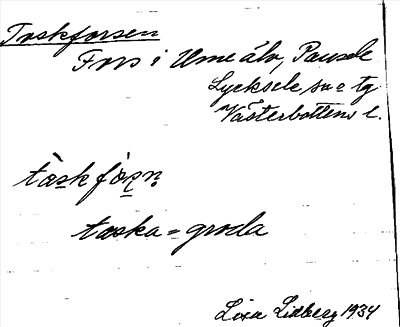 Toskforsen
Fors i Ume älv, Pausele
Lycksele sn o tg
Västerbottens l.
tåskfóṣn̥
toska = groda
Lisa Lidberg 1934